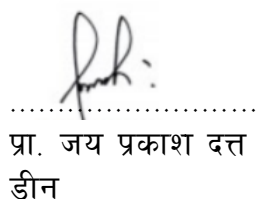 ............................
प्रा. जय प्रकाश दत्त
डीन